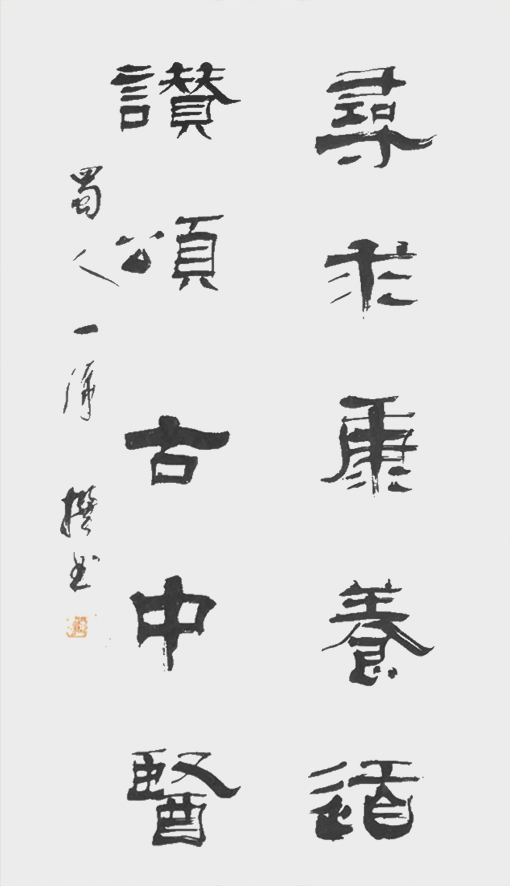 尋求康養道
讃頌古中醫
蜀人一痴撰书